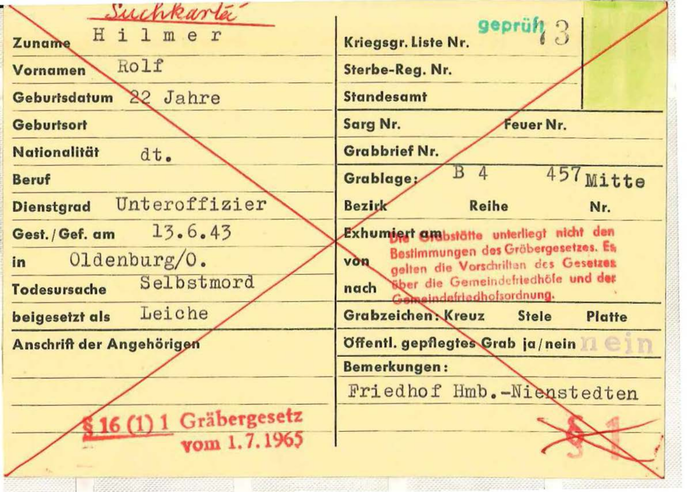 Suchkartei
Zuname Hilmer
Vornamen Rolf
Geburtsdatum 22 Jahre
Geburtsort
Nationalität dt.
Beruf
Dienstgrad Unteroffizier
Gest./Gef. am 13.6.43
in Oldenburg/O.
Todesursache Selbstmord
beigesetzt als Leiche
Anschrift der Angehörigen
§ 16 (1) 1 Gräbergesetz
vom 1.7.1965
geprüft
Kriegsgr. Liste Nr. 73
Sterbe-Reg. Nr.
Standesamt
Sarg Nr. Feuer Nr.
Grabbrief Nr.
Grablage: B 4 457 Mitte
Bezirk Reihe Nr.
Exhumiert am
von
nach
Die Grabstätte unterliegt nicht den
Bestimmungen des Gräbergesetzes. Es
gelten die Vorschriften des Gesetzes
über die Gemeindefriedhöfe und der
Gemeindefriedhofsordnung.
Grabzeichen: Kreuz Stele Platte
Öffentl. gepflegtes Grab ja/nein nein
Bemerkungen:
Friedhof Hmb.-Nienstedten
§ 1